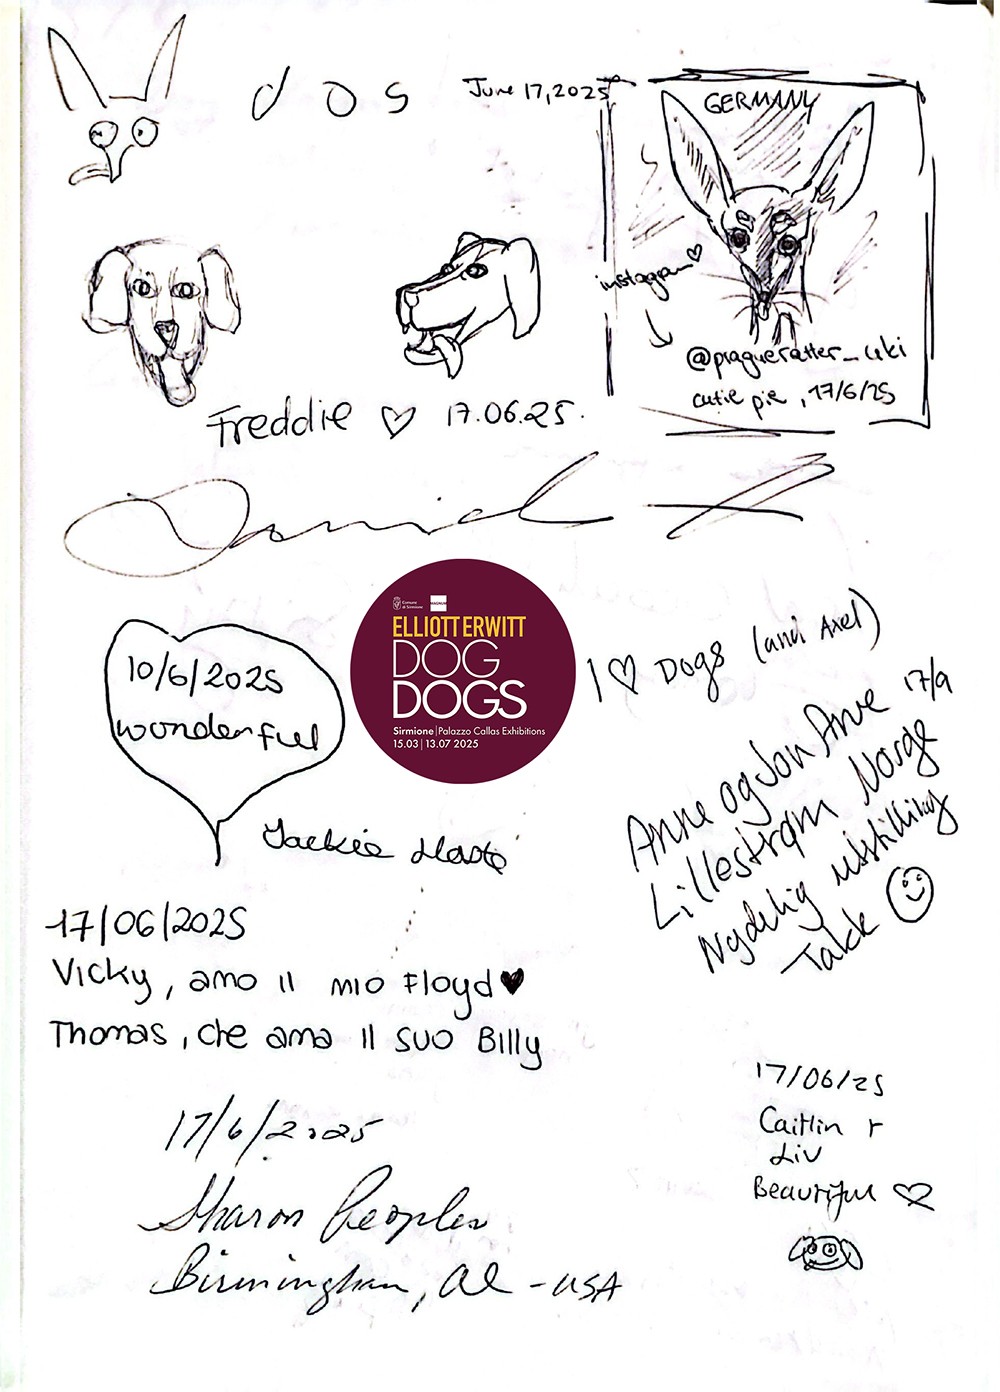 d o s
June 17, 2025
GERMANY
instagram
@pragueratter_
cutie pie, 17/6/25
Freddie ♡ 17.06.25.
Comune
di Sirmione
MAGNUM
ELLIOTT ERWITT
DOG
DOGS
Sirmione | Palazzo Callas Exhibitions
15.03 | 13.07 2025
10/6/2025
wonderful
Jackie
I ♡ Dogs (and Axel)
17/9
Anne og Jon Arve
Lillestrøm Norge
Nydelig utstilling
Takk ☺
17/06/2025
Vicky, amo il mio Floyd ♥
Thomas, che ama il suo Billy
17/6/2025
Sharon Peoples
Birmingham, Al - USA
17/06/25
Caitlin +
Liv
Beautiful ♡